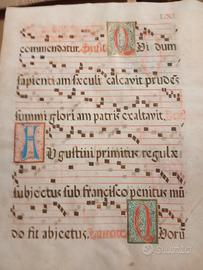 LXI
commendatur. QVi dum
sapientiam sæculi calcavit prudēs
summi gloriam patris exaltavit.
AVgustini primitus regulæ
subjectus sub francisco penitus mū
do fit abjectus. QVorū